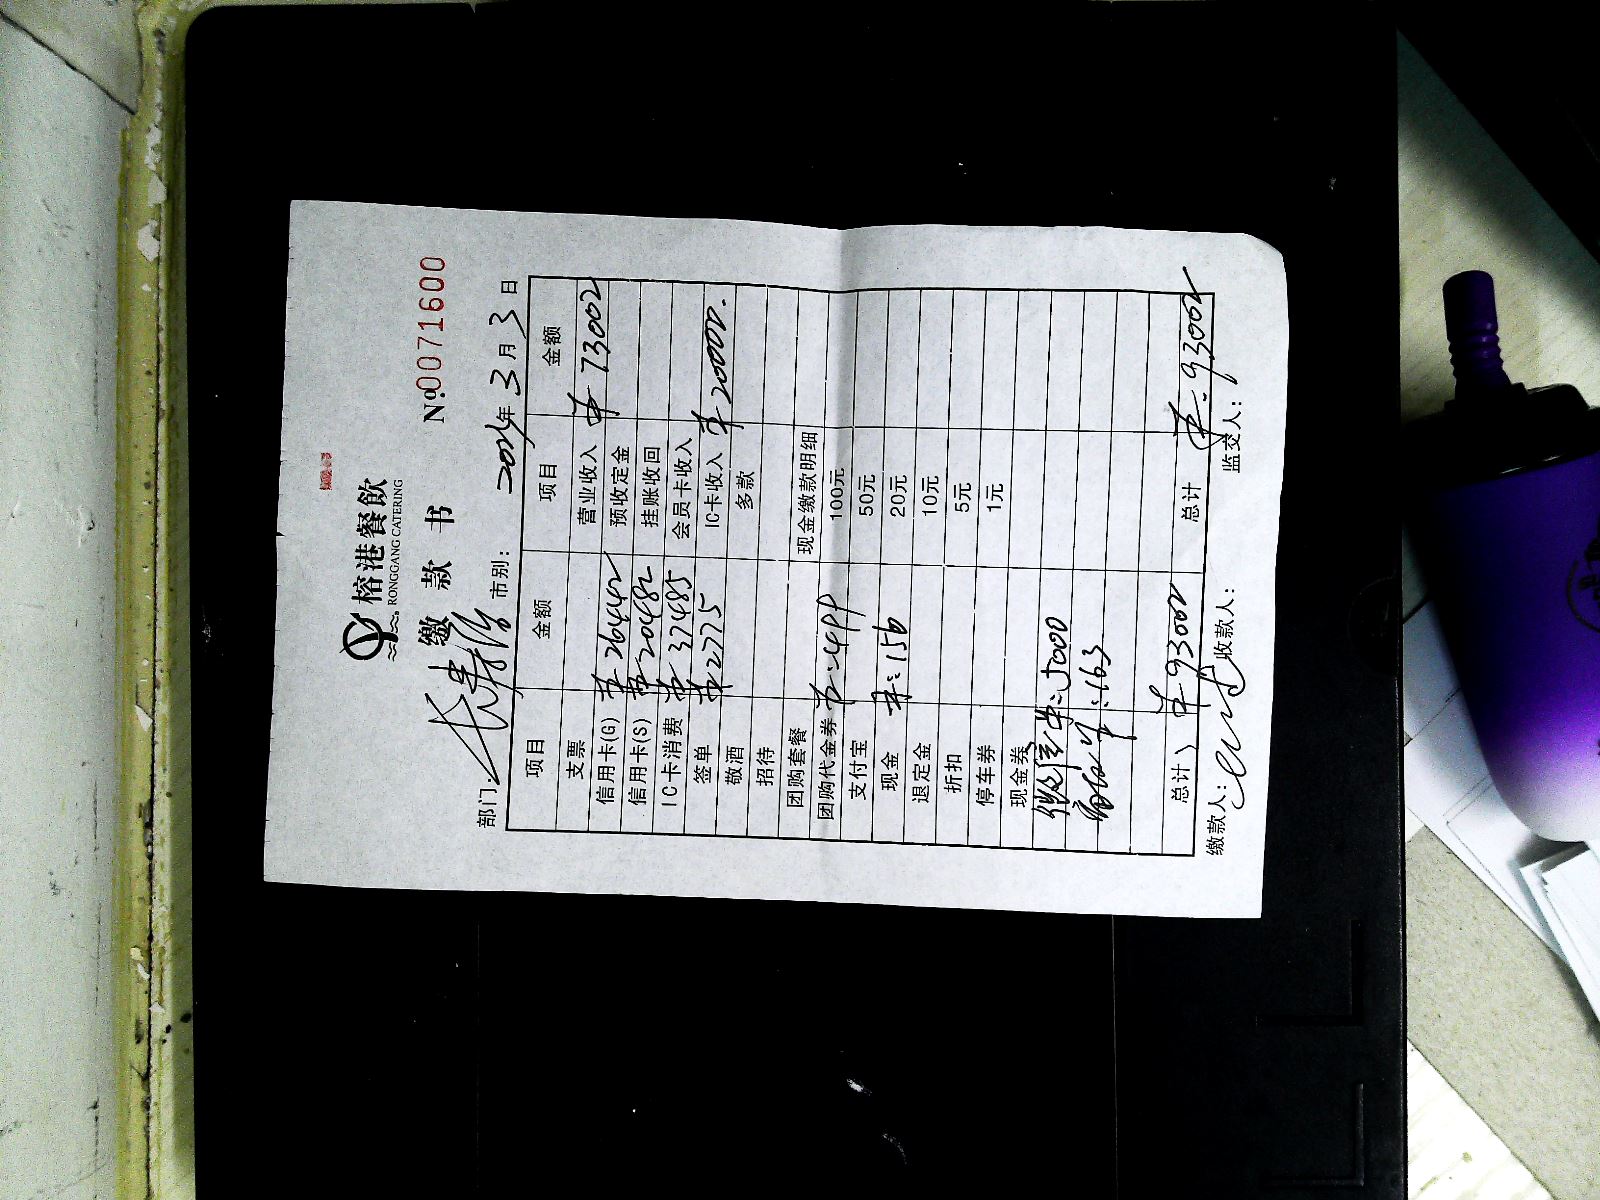 榕港餐飲
RONGGANG CATERING
缴 款 书
№0071600
部门: 市别: 年 3 月 3 日
项目 金额 项目 金额
支票 营业收入 ¥73002
信用卡(G) ¥26442 预收定金
信用卡(S) ¥20482 挂账收回
IC卡消费 ¥37485 会员卡收入
签单 ¥2775 IC卡收入 ¥20000.
敬酒 多款
招待
团购套餐 现金缴款明细
团购代金券 ¥:499 100元
支付宝 50元
现金 ¥:156 20元
退定金 10元
折扣 5元
停车券 1元
现金券
微信 ¥:5000
¥:163
总计 ¥93002 总计 ¥.93002
缴款人: 收款人: 监交人: